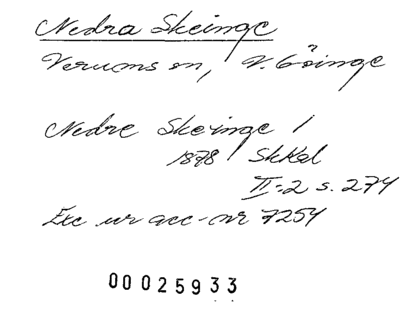 Nedra Skeinge
Verums sn, V. Göinge
Nedre Skeinge /
1878 / SkKal
II:2 s. 274
Exc ur acc-nr 7254
00025933